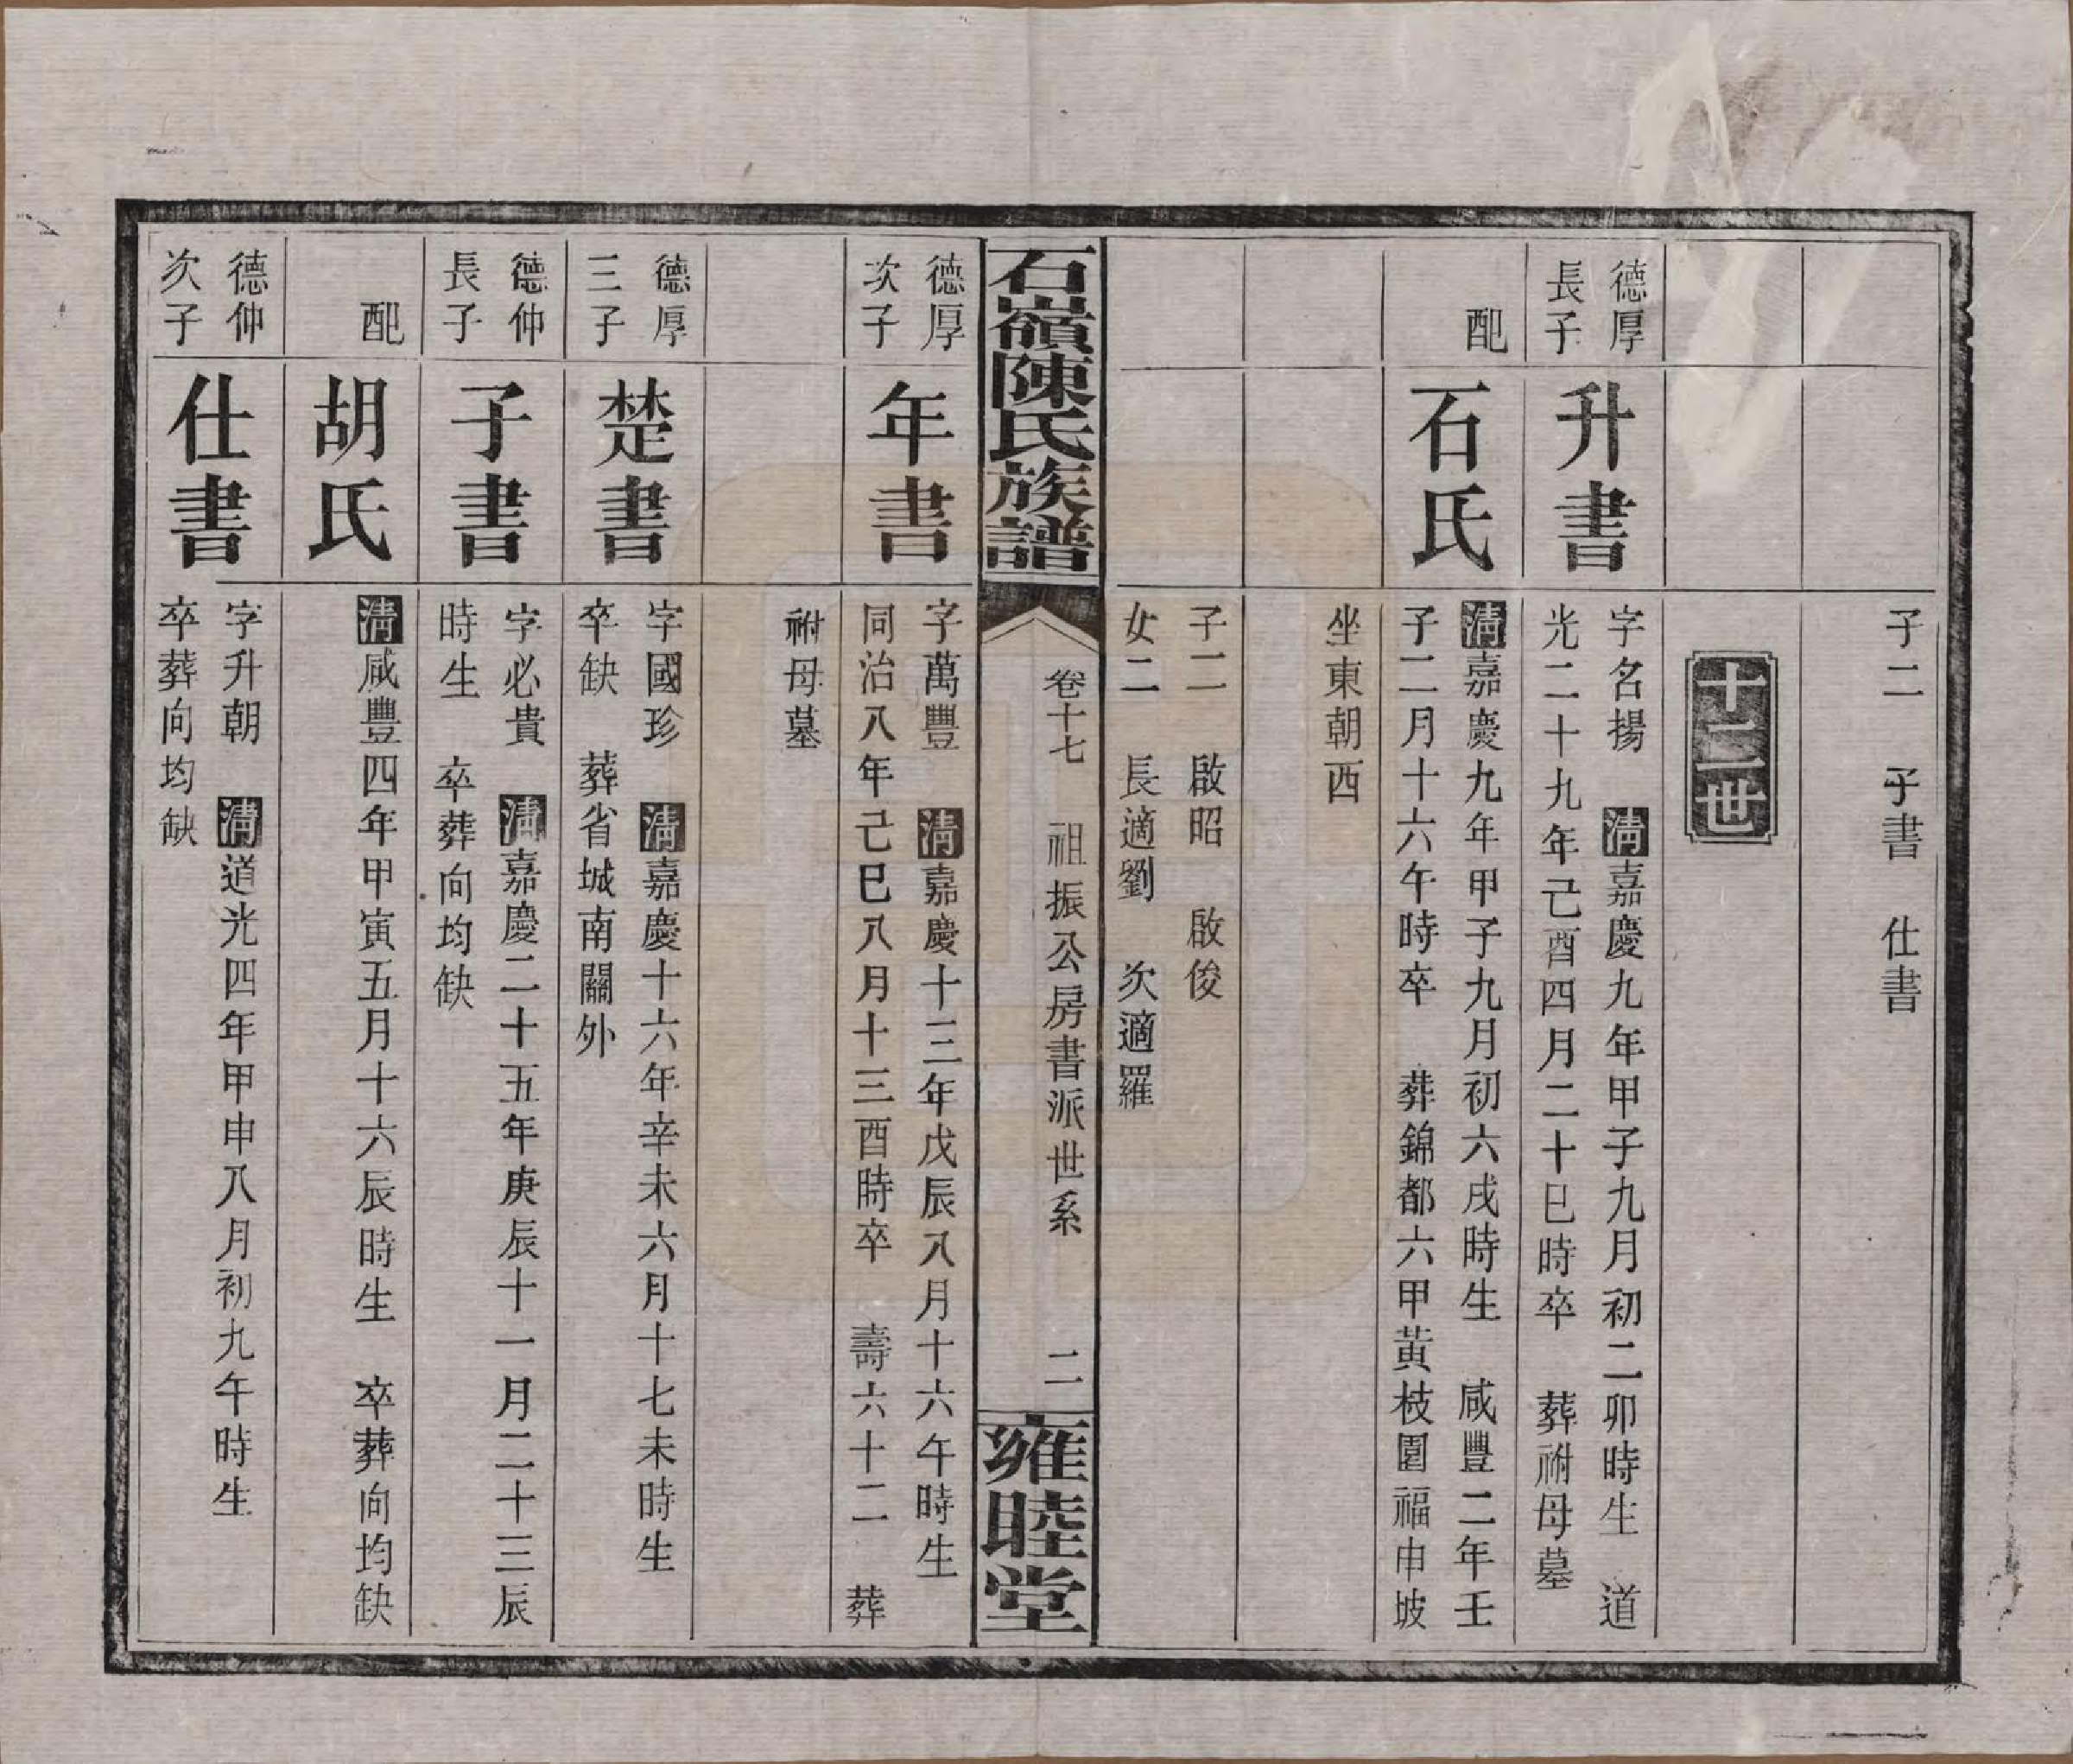 子二　子書　仕書
十二世
德厚
長子
升書
字名揚　清嘉慶九年甲子九月初二卯時生　道
光二十九年己酉四月二十巳時卒　葬祔母墓
配
石氏
清嘉慶九年甲子九月初六戌時生　咸豐二年壬
子二月十六午時卒　葬錦都六甲黃枝園福申坡
坐東朝西
子二　啟昭　啟俊
女二　長適劉　次適羅
石嶺陳氏族譜
卷十七　祖振公房書派世系　二
雍睦堂
德厚
次子
年書
字萬豐　清嘉慶十三年戊辰八月十六午時生
同治八年己巳八月十三酉時卒　壽六十二　葬
祔母墓
德厚
三子
楚書
字國珍　清嘉慶十六年辛未六月十七未時生
卒缺　葬省城南關外
德仲
長子
子書
字必貴　清嘉慶二十五年庚辰十一月二十三辰
時生　卒葬向均缺
配
胡氏
清咸豐四年甲寅五月十六辰時生　卒葬向均缺
德仲
次子
仕書
字升朝　清道光四年甲申八月初九午時生
卒葬向均缺